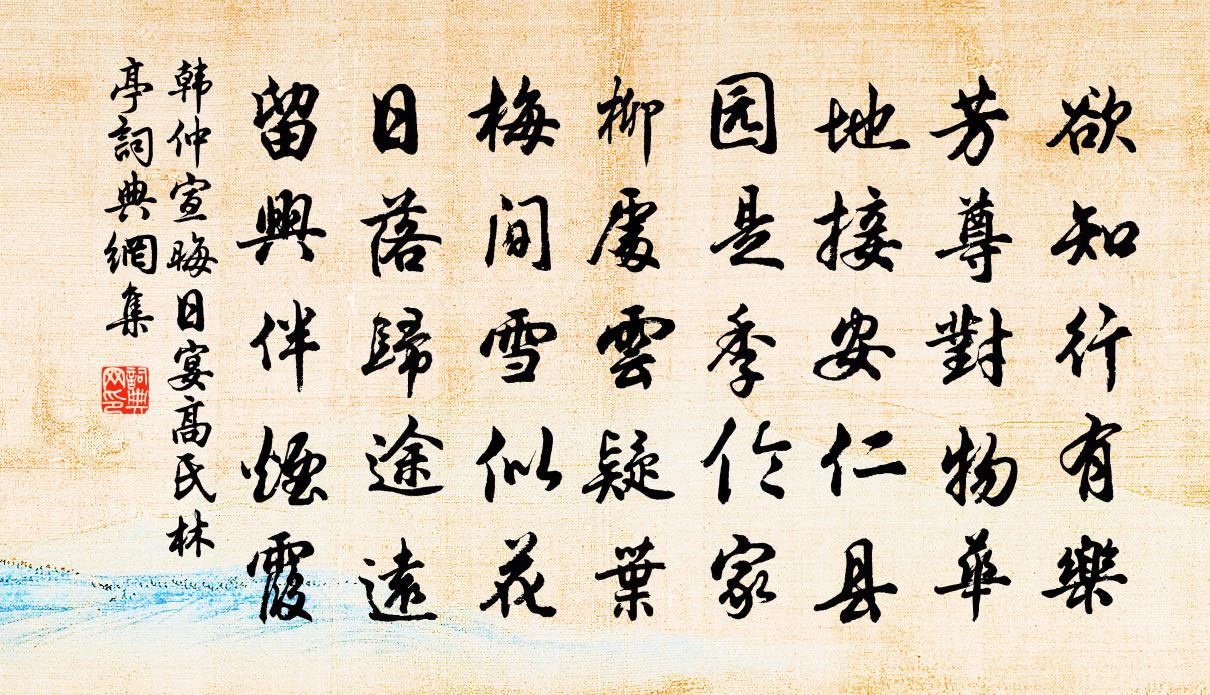 欲知行有樂
芳尊對物華
地接安仁县
园是季伦家
柳處雲疑葉
梅间雪似花
日落歸途遠
留興伴煙霞
韩仲宣晦日宴高氏林
亭詞典網集
詞典
网印